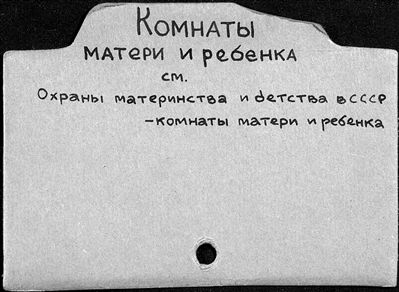 Комнаты
матери и ребенка
см.
Охраны материнства и детства в СССР
-комнаты матери и ребенка